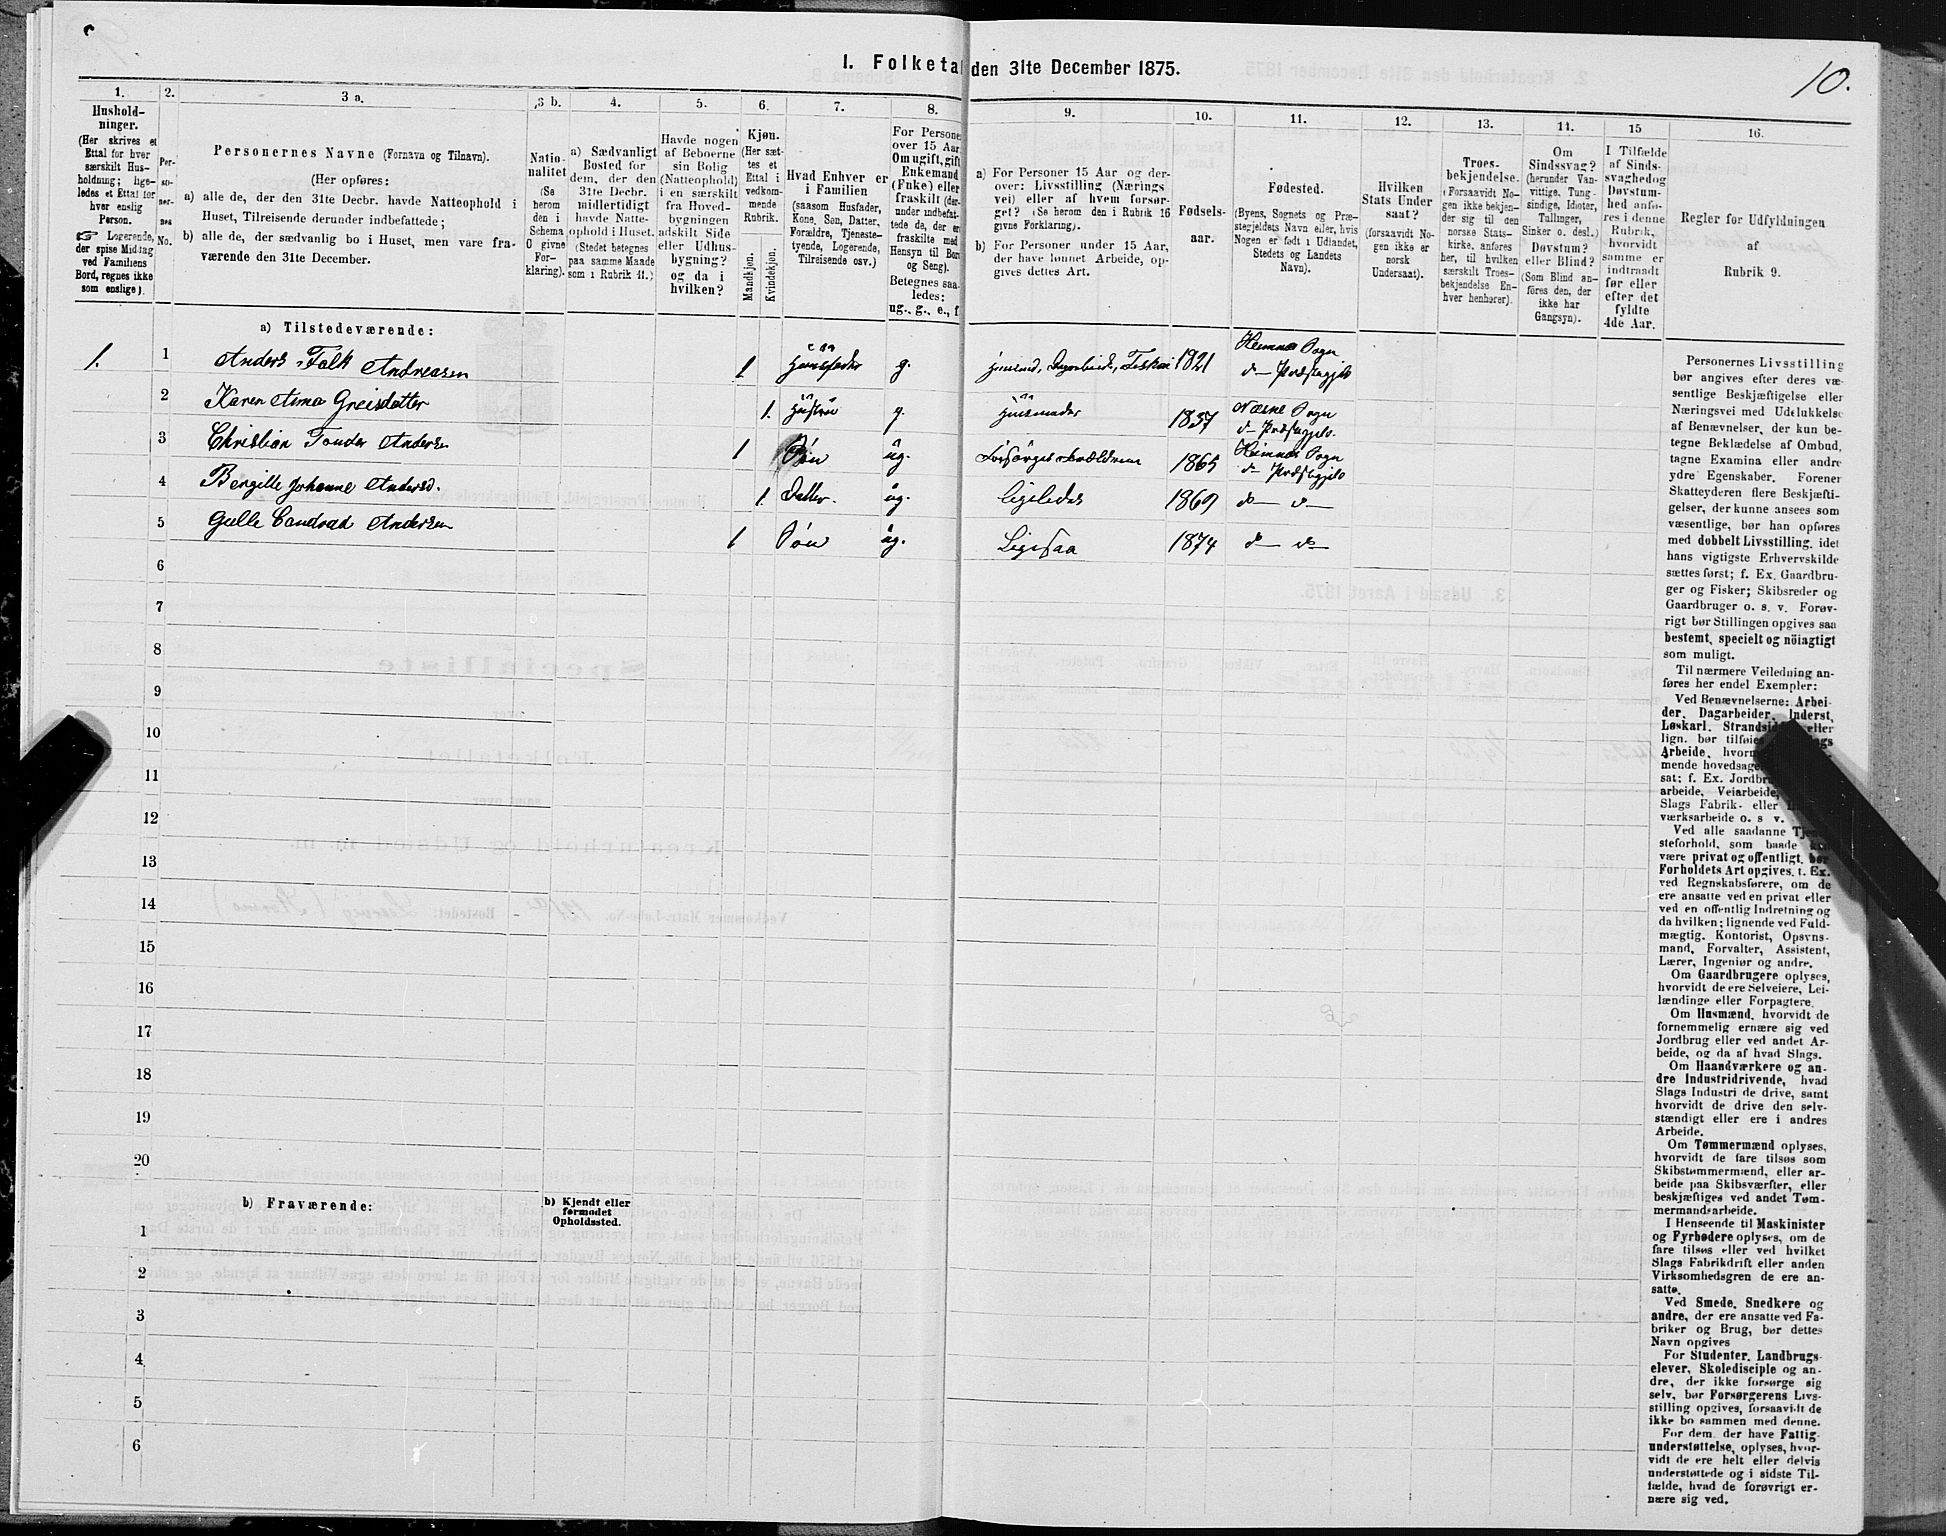 10.
I. Folketal den 31te December 1875.
1.
2.
3 a.
3 b.
4.
5.
6.
7.
8.
9.
10.
11.
12.
13.
14.
15
16.
Hushold-
ninger.
(Her skrives et
Ettal for hver
særskilt Hus-
holdning; lige-
ledes et Ettal for
hver enslig
Person.
☞ Logerende,
der spise Middag
ved Familiens
Bord, regnes ikke
som enslige).
Per-
so-
ner-
nes
No.
Personernes Navne (Fornavn og Tilnavn).
(Her opføres:
a) alle de, der den 31te Decbr. havde Natteophold i
Huset, Tilreisende derunder indbefattede;
b) alle de, der sædvanlig bo i Huset, men vare fra-
værende den 31te December.
Natio-
nalitet
(Se
herom
den i
Schema
O givne
For-
klaring).
a) Sædvanligt
Bosted for
dem, der den
31te Decbr.
midlertidigt
havde Natte-
ophold i Huset.
(Stedet betegnes
paa samme Maade
som i Rubrik 11.)
Havde nogen
af Beboerne
sin Bolig
(Natteophold)
i en særskilt
fra Hoved-
bygningen
adskilt Side
eller Udhus-
bygning?
og da i
hvilken?
Kjøn.
(Her sæt-
tes et
Ettal i
vedkom-
mende
Rubrik.
Mandkjøn.
Kvindekjøn.
Hvad Enhver er
i Familien
(saasom Husfader,
Kone, Søn, Datter,
Forældre, Tjeneste-
tyende, Logerende,
Tilreisende osv.)
For Persone
over 15 Aar
Om ugift, gift
Enkemand
(Enke) eller
fraskilt (der-
under indbefat-
tede de, der er
fraskilte med
Hensyn til Bor
og Seng).
Betegnes saa-
ledes:
ug., g., e., f.
a) For Personer 15 Aar og der-
over: Livsstilling (Nærings
vei) eller af hvem forsør-
get? (Se herom den i Rubrik 16
givne Forklaring).
b) For Personer under 15 Aar,
der have lønnet Arbeide, op-
gives dettes Art.
Fødsels-
aar.
Fødested.
(Byens, Sognets og Præ-
stegjeldets Navn eller, hvis
Nogen er født i Udlandet,
Stedets og Landets
Navn).
Hvilken
Stats Under
saat?
(forsaavidt No-
gen ikke er
norsk
Undersaat).
Troes-
bekjendelse.
(Forsaavidt No-
gen ikke bekjen-
der sig til den
norske Stats-
kirke, anføres
her, til hvilken
særskilt Troes-
bekjendelse En-
hver henhører).
Om
Sindssvag?
(herunder Van-
vittige, Tung-
sindige, Idioter,
Tullinger,
Sinker o. desl.)
Døvstum?
eller Blind?
(Som Blind an-
føres den, der
ikke har
Gangsyn).
I Tilfælde
af Sinds-
svaghedog
Døvstum-
hed anfø-
res i denne
Rubrik,
hvorvidt
samme er
indtraadt
før eller
efter det
fyldte
4de Aar.
Regler for Udfyldningen
af
Rubrik 9.
a) Tilstedeværende:
1. 1 Anders Falk Andreasen 1 Huusfader g. Huusmd, Dagarbeide, Fisker 1821 Hemnes Sogn
d— Præstegjeld
2 Karen Anna Greisdatter 1. Hustru g. Huusmoder 1837 Næsne Sogn
d— Præstegjeld.
3 Christian Tonder Andersen 1 Søn ug. Forsørges Forældrene 1865 Hemnes Sogn
d— Præstegjeld
4 Bergitte Johanne Andersd. 1. Datter. ug. ligeledes 1869 d— d—
5 Gulle Condrad Andersen 1 Søn ug. Ligesaa 1874 d— d—
6
7
8
9
10
11
12
13
14
15
16
17
18
19
20
b) Fraværende:
b) Kjendt eller
formodet
Opholdssted.
1
2
3
4
5
6
Personernes Livsstilling
bør angives efter deres væ-
sentlige Beskjæftigelse eller
Næringsvei med Udelukkelse
af Benævnelser, der kun be-
tegne Beklædelse af Ombud,
tagne Examina eller andre
ydre Egenskaber. Forener
Skatteyderen flere Beskjæfti-
gelser, der kunne ansees som
væsentlige, bør han opføres
med dobbelt Livsstilling, idet
hans vigtigste Erhvervskilde
sættes først; f. Ex. Gaardbru-
ger og Fisker; Skibsreder og
Gaardbruger o. s. v. Forøv-
rigt bør Stillingen opgives saa
bestemt, specielt og nöiagtigt
som muligt.
Til nærmere Veiledning an-
føres her endel Exempler:
Ved Benævnelserne: Arbei-
der, Dagarbeider, Inderst,
Løskarl, Strandsid eller
lign. bør tilføies
Arbeide, hvor
mende hovedsage
sat; f. Ex. Jordbr
arbeide, Veiarbeide,
Slags Fabrik- eller
værksarbeide o. s v.
Ved alle saadanne Tje
steforhold, som baade
være privat og offentligt, bør
Forholdets Art opgives, t. Ex.
ved Regnskabsførere, om de
ere ansatte ved en privat eller
ved en offentlig Indretning og
da hvilken; lignende ved Fuld-
mægtig, Kontorist, Opsyns-
mand, Forvalter, Assistent,
Lærer, Ingeniør og andre.
Om Gaardbrugere oplyses,
hvorvidt de ere Selveiere, Lei-
lændinge eller Forpagtere.
Om Husmænd, hvorvidt de
fornemmelig ernære sig ved
Jordbrug eller ved andet Ar-
beide, og da af hvad Slags.
Om Haandværkere og an-
dre Industridrivende, hvad
Slags Industri de drive, samt
hvorvidt de drive den selv-
stændigt eller ere i andres
Arbeide.
Om Tømmermænd oplyses,
hvorvidt de fare tilsøs som
Skibstømmermænd, eller ar-
beide paa Skibsværfter, eller
beskjæftiges ved andet Tøm-
mermandsarbeide.
I Henseende til Maskinister
og Fyrbødere oplyses, om de
fare tilsøs eller ved hvilket
Slags Fabrikdrift eller anden
Virksomhedsgren de ere an-
satte.
Ved Smede, Snedkere og
andre, der ere ansatte ved Fa-
briker og Brug, bør dettes
Navn opgives
For Studenter, Landbrugs-
elever, Skoledisciple og an-
dre, der ikke forsørge sig
selv, bør Forsørgerens Livs-
stilling opgives, forsaavidt de
ikke bo sammen med denne.
For dem, der have Fattig-
understøttelse, oplyses, hvor-
vidt de ere helt eller delvis
understøttede og i sidste Til-
fælde, hvad de forøvrigt er-
nære sig ved.